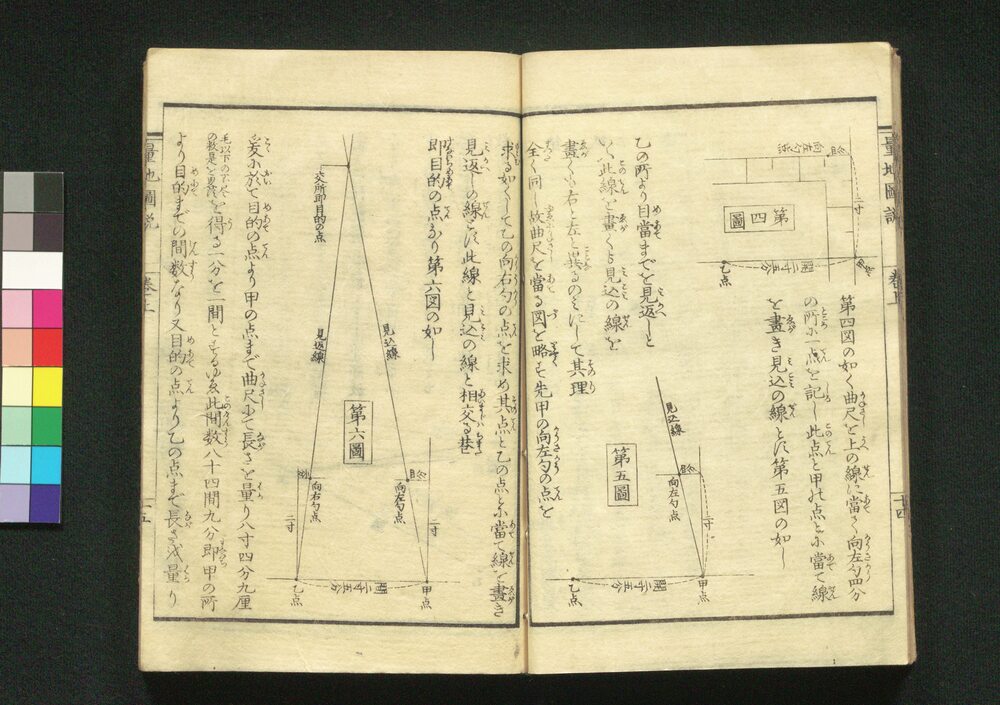 量地圖説
巻上
十四
第四圖
二寸
乙点
第四図の如く曲尺を上の線に當さく向左勾四分
の所に一点を記し此点と甲の点とに當て線
を畫き見込の線とす第五図の如し
第五圖
見込線
四分
向左勾点
二寸
甲点
間二寸五分
乙点
乙の所より目當までを見返しと
いへ此線を畫くも見込の線を
畫くも右と左と異るのみにして其理
全く同し故曲尺を當る図を略す先甲の向左勾の点を
求る如くして乙の向右勾の点を求め其点と乙の点とに當て線を畫き
見返しの線とす此線と見込の線と相交る巷
即目的の点なり第六図の如し
交所即目的の点
見込線
見返線
第六圖
四分
向左勾点
向右勾点
二寸
二寸
甲点
間二寸五分
乙点
爰に於て目的の点より甲の点まで曲尺にて長さを量り八寸四分九厘
毛以下の不尽の数是を畧すを得る一分を一間とするゆゑ此間数八十四間九分即甲の所
より目的までの間数なり又目的の点より乙の点まで長さを量り
量地圖説
巻上
十五